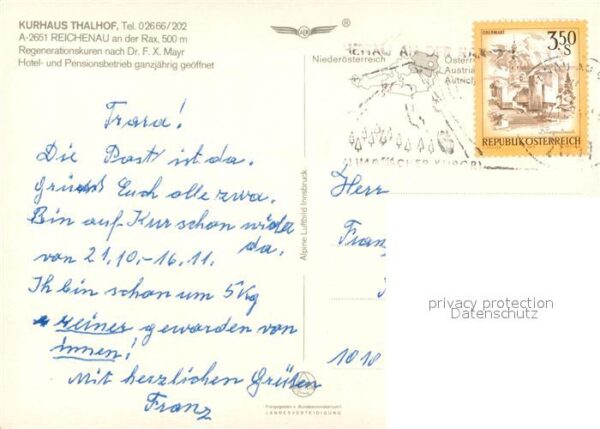 KURHAUS THALHOF, Tel. 02666/202
A-2651 REICHENAU an der Rax, 500 m
Regenerationskuren nach Dr. F. X. Mayr
Hotel- und Pensionsbetrieb ganzjährig geöffnet
®
Niederösterreich
Austria
AN DER RAX
3.50
S
REPUBLIK ÖSTERREICH
Trara!
Die Post ist da.
Grüsst Euch alle zwa.
Bin auf Kur schon wieder
da.
von 21.10.-16.11.
Ich bin schon um 5 Kg
reiner geworden von
innen!
Mit herzlichen Grüßen
Franz
Alpine Luftbild Innsbruck
Freigegeben v. Bundesministerium f.
LANDESVERTEIDIGUNG
Herr
Franz
1010
privacy protection
Datenschutz